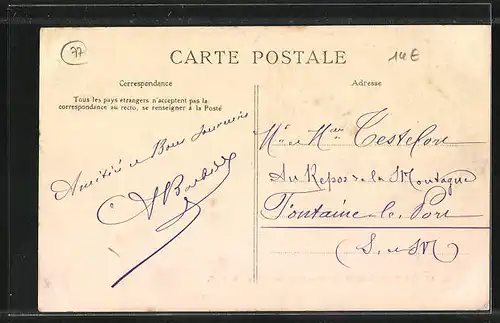 77
CARTE POSTALE
14E
Correspondance
Tous les pays étrangers n'acceptent pas la
correspondance au recto, se renseigner à la Poste
Amitiés et Bons Souvenirs
Adresse
Mr et Mme Testelou
Au Repos de la Montagne
Fontaine-le-Port
(S. et M)